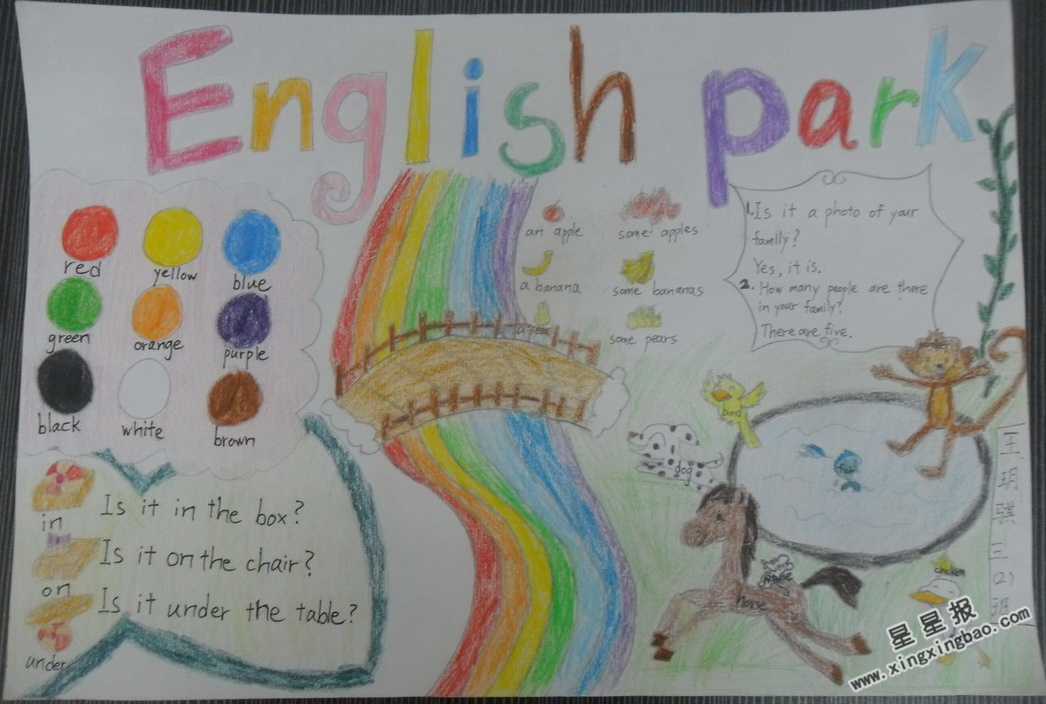 English park
red
yellow
blue
green
orange
purple
black
white
brown
in
Is it in the box?
on
Is it on the chair?
under
Is it under the table?
an apple
some apples
a banana
some bananas
a pear
some pears
1. Is it a photo of your
family?
Yes, it is.
2. How many people are there
in your family?
There are five.
bird
dog
fish
horse
chicken
王玥骐三(2)班
星星报
www.xingxingbao.com